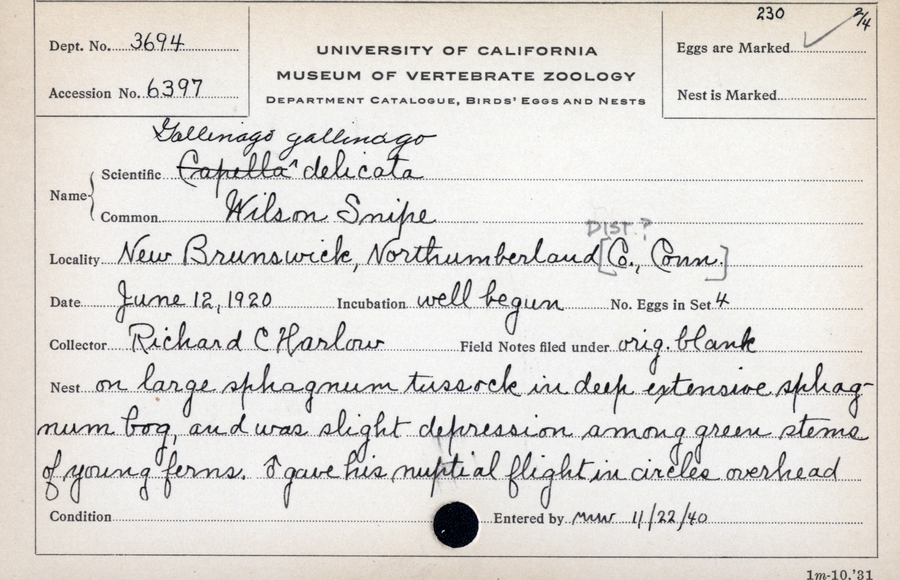 230 2/4
Dept. No. 3694
UNIVERSITY OF CALIFORNIA
Eggs are Marked ✓
MUSEUM OF VERTEBRATE ZOOLOGY
Accession No. 6397
DEPARTMENT CATALOGUE, BIRDS' EGGS AND NESTS
Nest is Marked
Gallinago gallinago
Name { Scientific Capella ^ delicata
Common Wilson Snipe
DIST.?
Locality New Brunswick, Northumberland [Co., Conn.]
Date June 12, 1920 Incubation well begun No. Eggs in Set 4
Collector Richard C Harlow Field Notes filed under orig. blank
Nest on large sphagnum tussock in deep extensive sphag-
num bog, and was slight depression among green stems
of young ferns. ♂ gave his nuptial flight in circles overhead
Condition Entered by mw 11/22/40
1m-10,'31